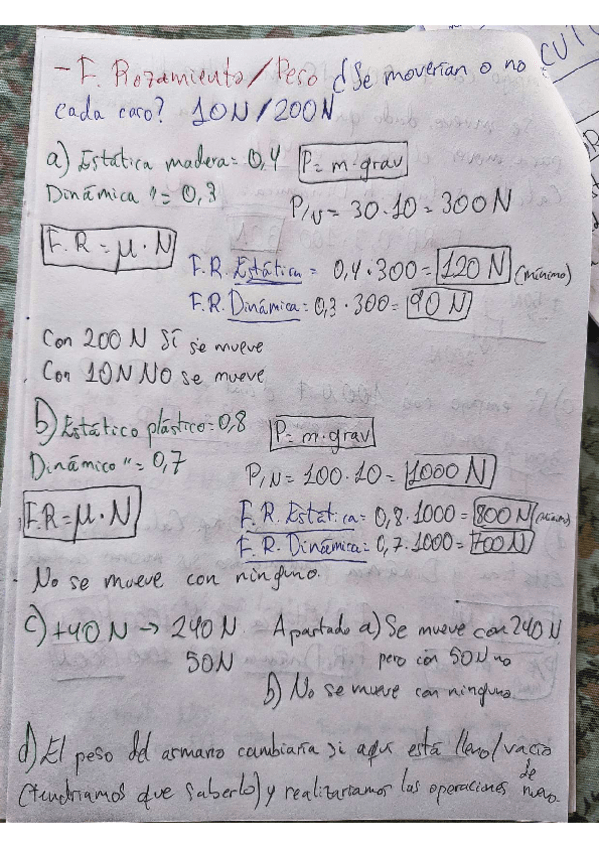 - F. Rozamiento/Peso ¿Se moverían o no
cada caso? 10N/200N
a) Estática madera = 0,4 P = m·grav
Dinámica " = 0,3
P/N = 30·10 = 300N
F.R = μ·N
F.R. Estática = 0,4·300 = 120 N (mínimo)
F.R. Dinámica = 0,3·300 = 90 N
Con 200 N SÍ se mueve
Con 10N NO se mueve
b) Estático plástico = 0,8 P = m·grav
Dinámico " = 0,7
P/N = 100·10 = 1000 N
F.R = μ·N
F.R. Estática = 0,8·1000 = 800N (mínimo)
F.R. Dinámica = 0,7·1000 = 700N
No se mueve con ninguno.
c) +40N → 240N - Apartado a) Se mueve con 240N
50N pero con 50N no
b) No se mueve con ninguno
d) El peso del armario cambiaría si aquí está lleno/vacío
(tendríamos que saberlo) y realizaríamos las operaciones de nuevo.